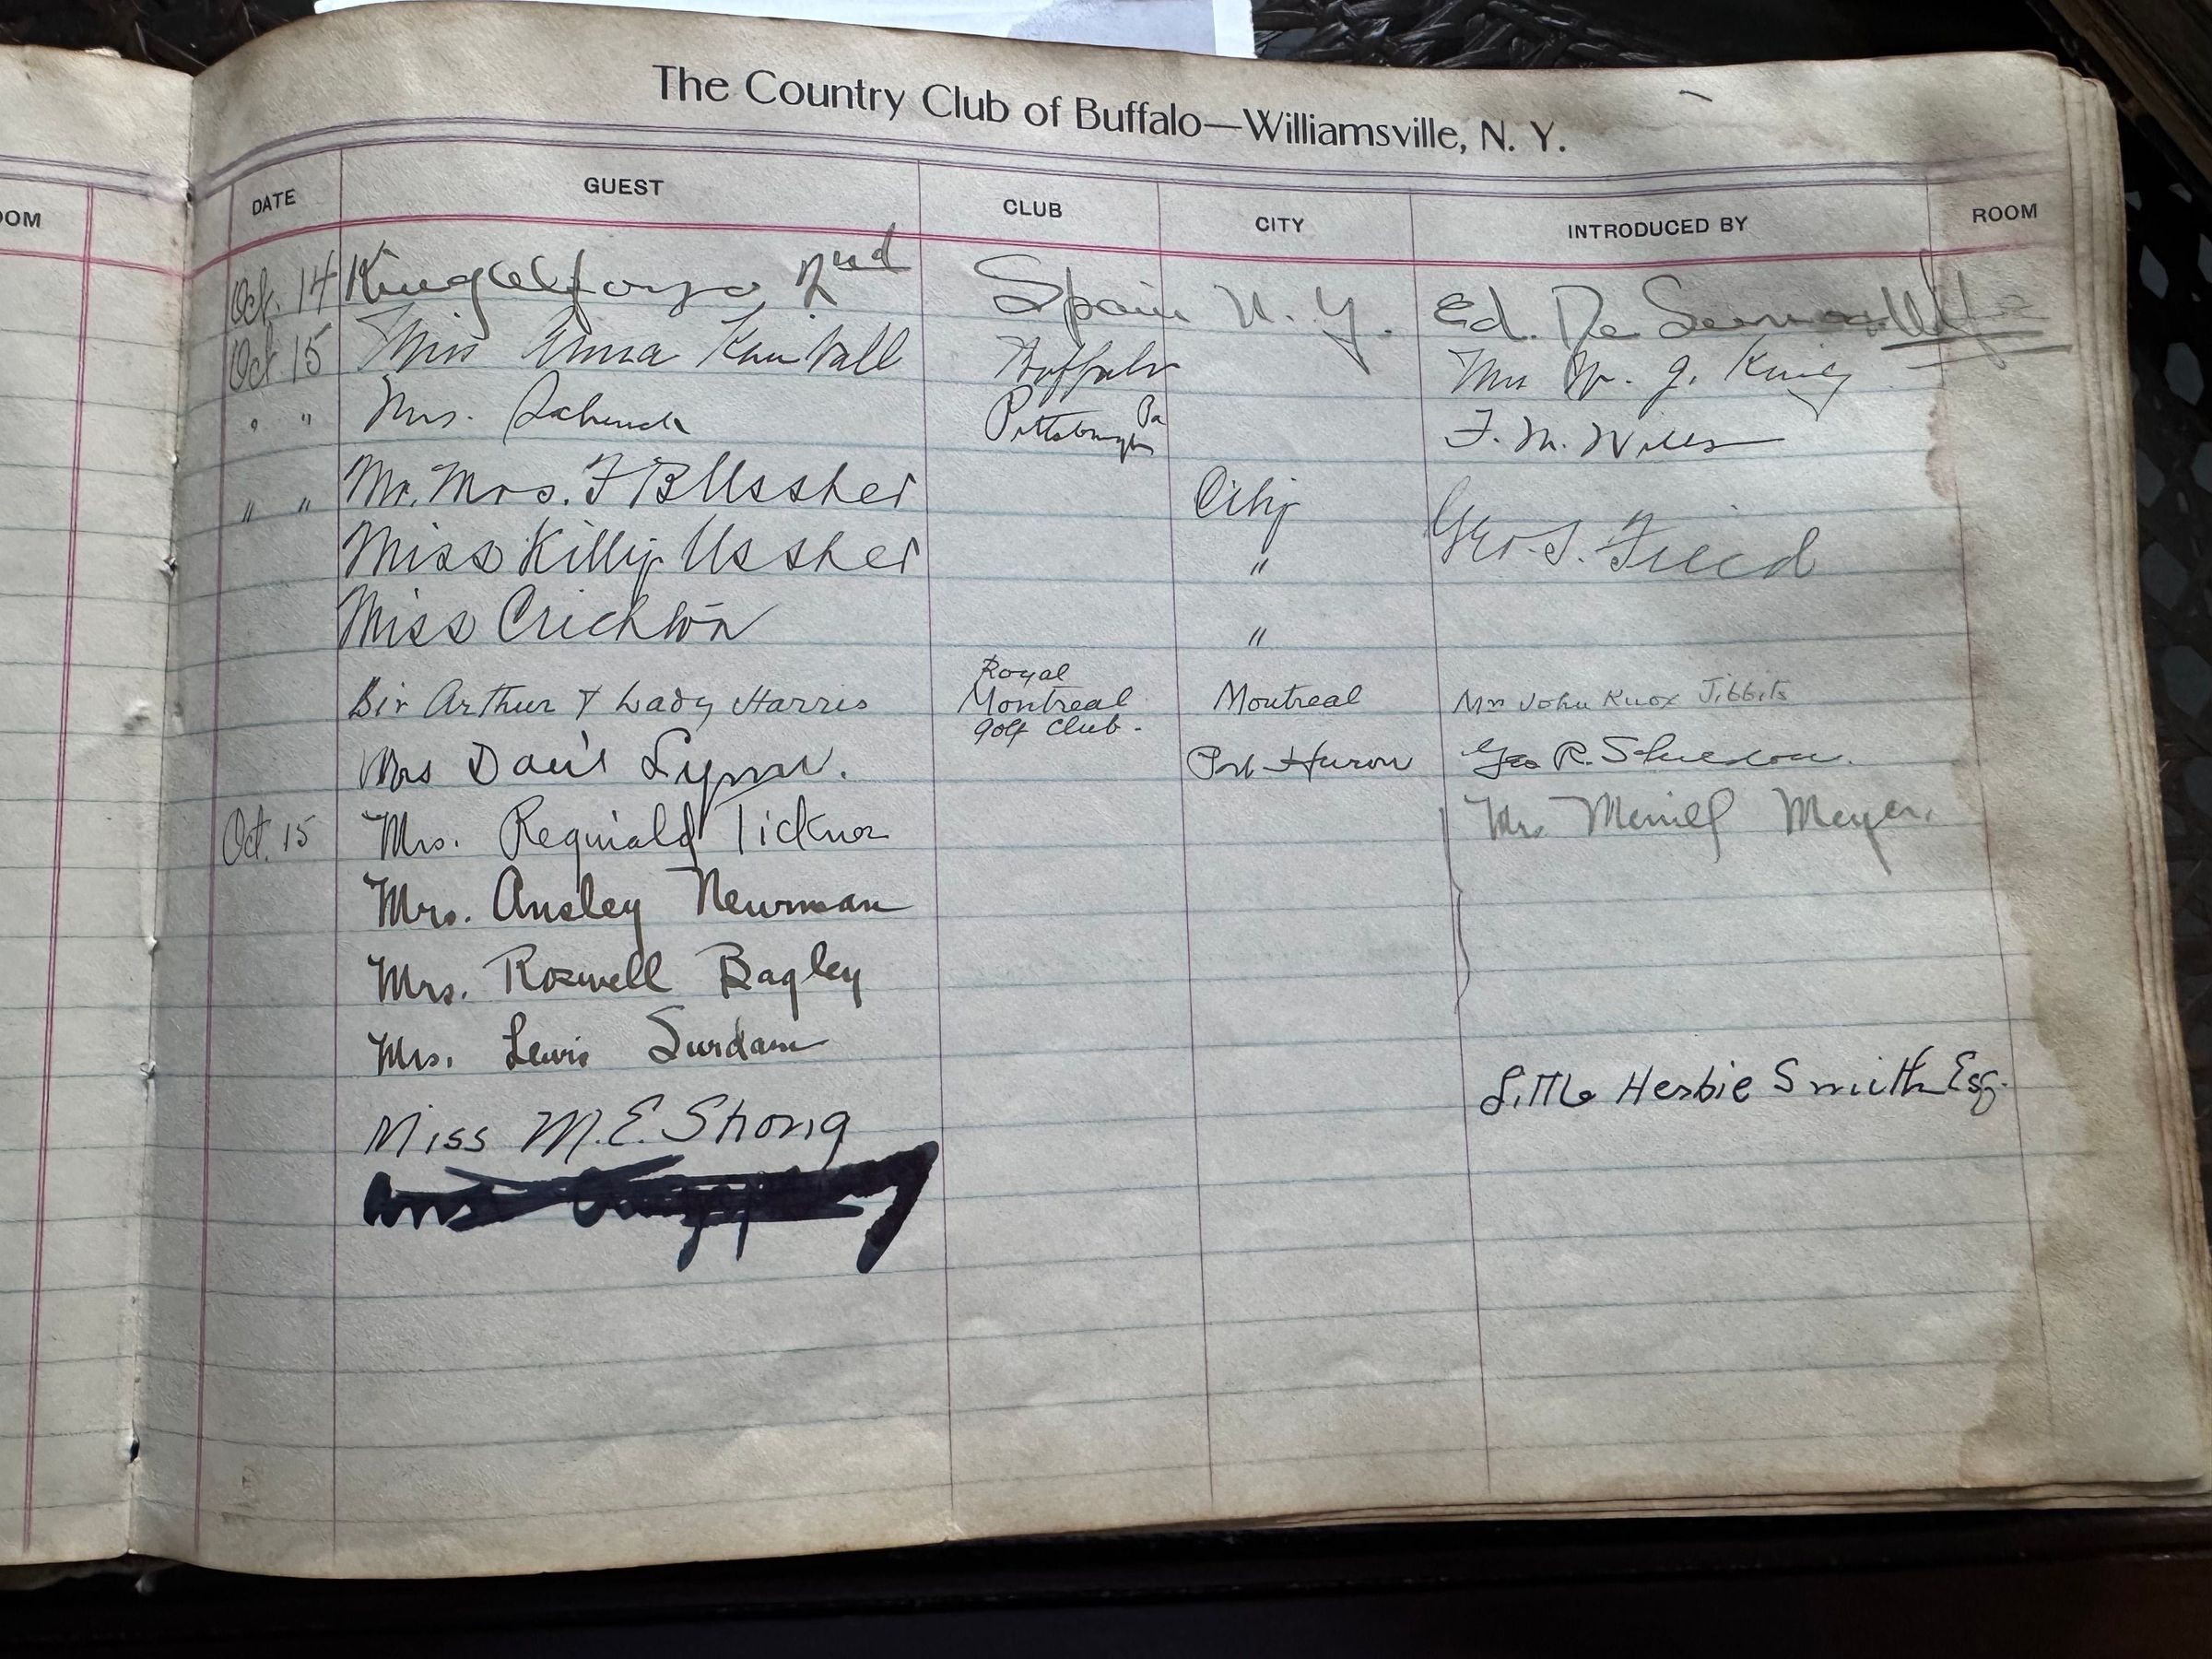 The Country Club of Buffalo—Williamsville, N. Y.
OOM DATE GUEST CLUB CITY INTRODUCED BY ROOM
Oct. 14 King Alfonzo 2nd Spain N. Y. Ed. De
Oct. 15 Miss Anna Buffalo Mrs W. J. King
" " Mrs. Schenck Pittsburgh Pa F. M. Wills
" " Mr. Mrs. F B Ussher City Geo. S. Field
Miss Killip Ussher "
Miss Crichton "
Sir Arthur & Lady Harris Royal Montreal Golf Club. Montreal Mrs John Knox Tibbits
Mrs Port Huron Geo R.
Oct. 15 Mrs. Reginald Ticknor Mrs Meyer.
Mrs. Ansley Newman
Mrs. Roswell Bagley
Mrs. Lewis Surdam
Miss M.E. Strong Little Herbie Smith Esq.